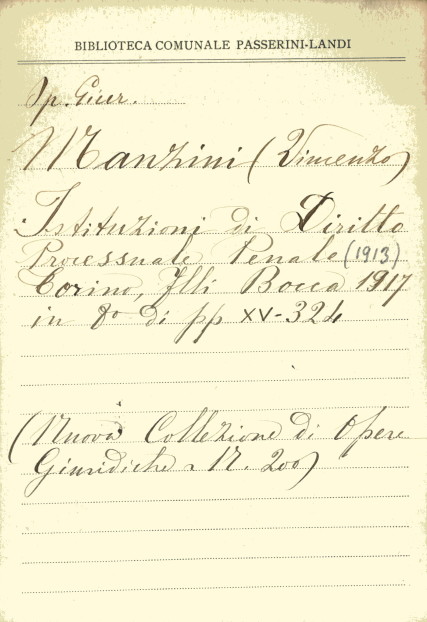 BIBLIOTECA COMUNALE PASSERINI-LANDI
Sp. Giur.
Manzini (Vincenzo)
Istituzioni di Diritto
Processuale Penale (1913)
Torino, Flli Bocca 1917
in 8º di pp XV-324
(Nuova Collezione di Opere
Giuridiche - N. 200)